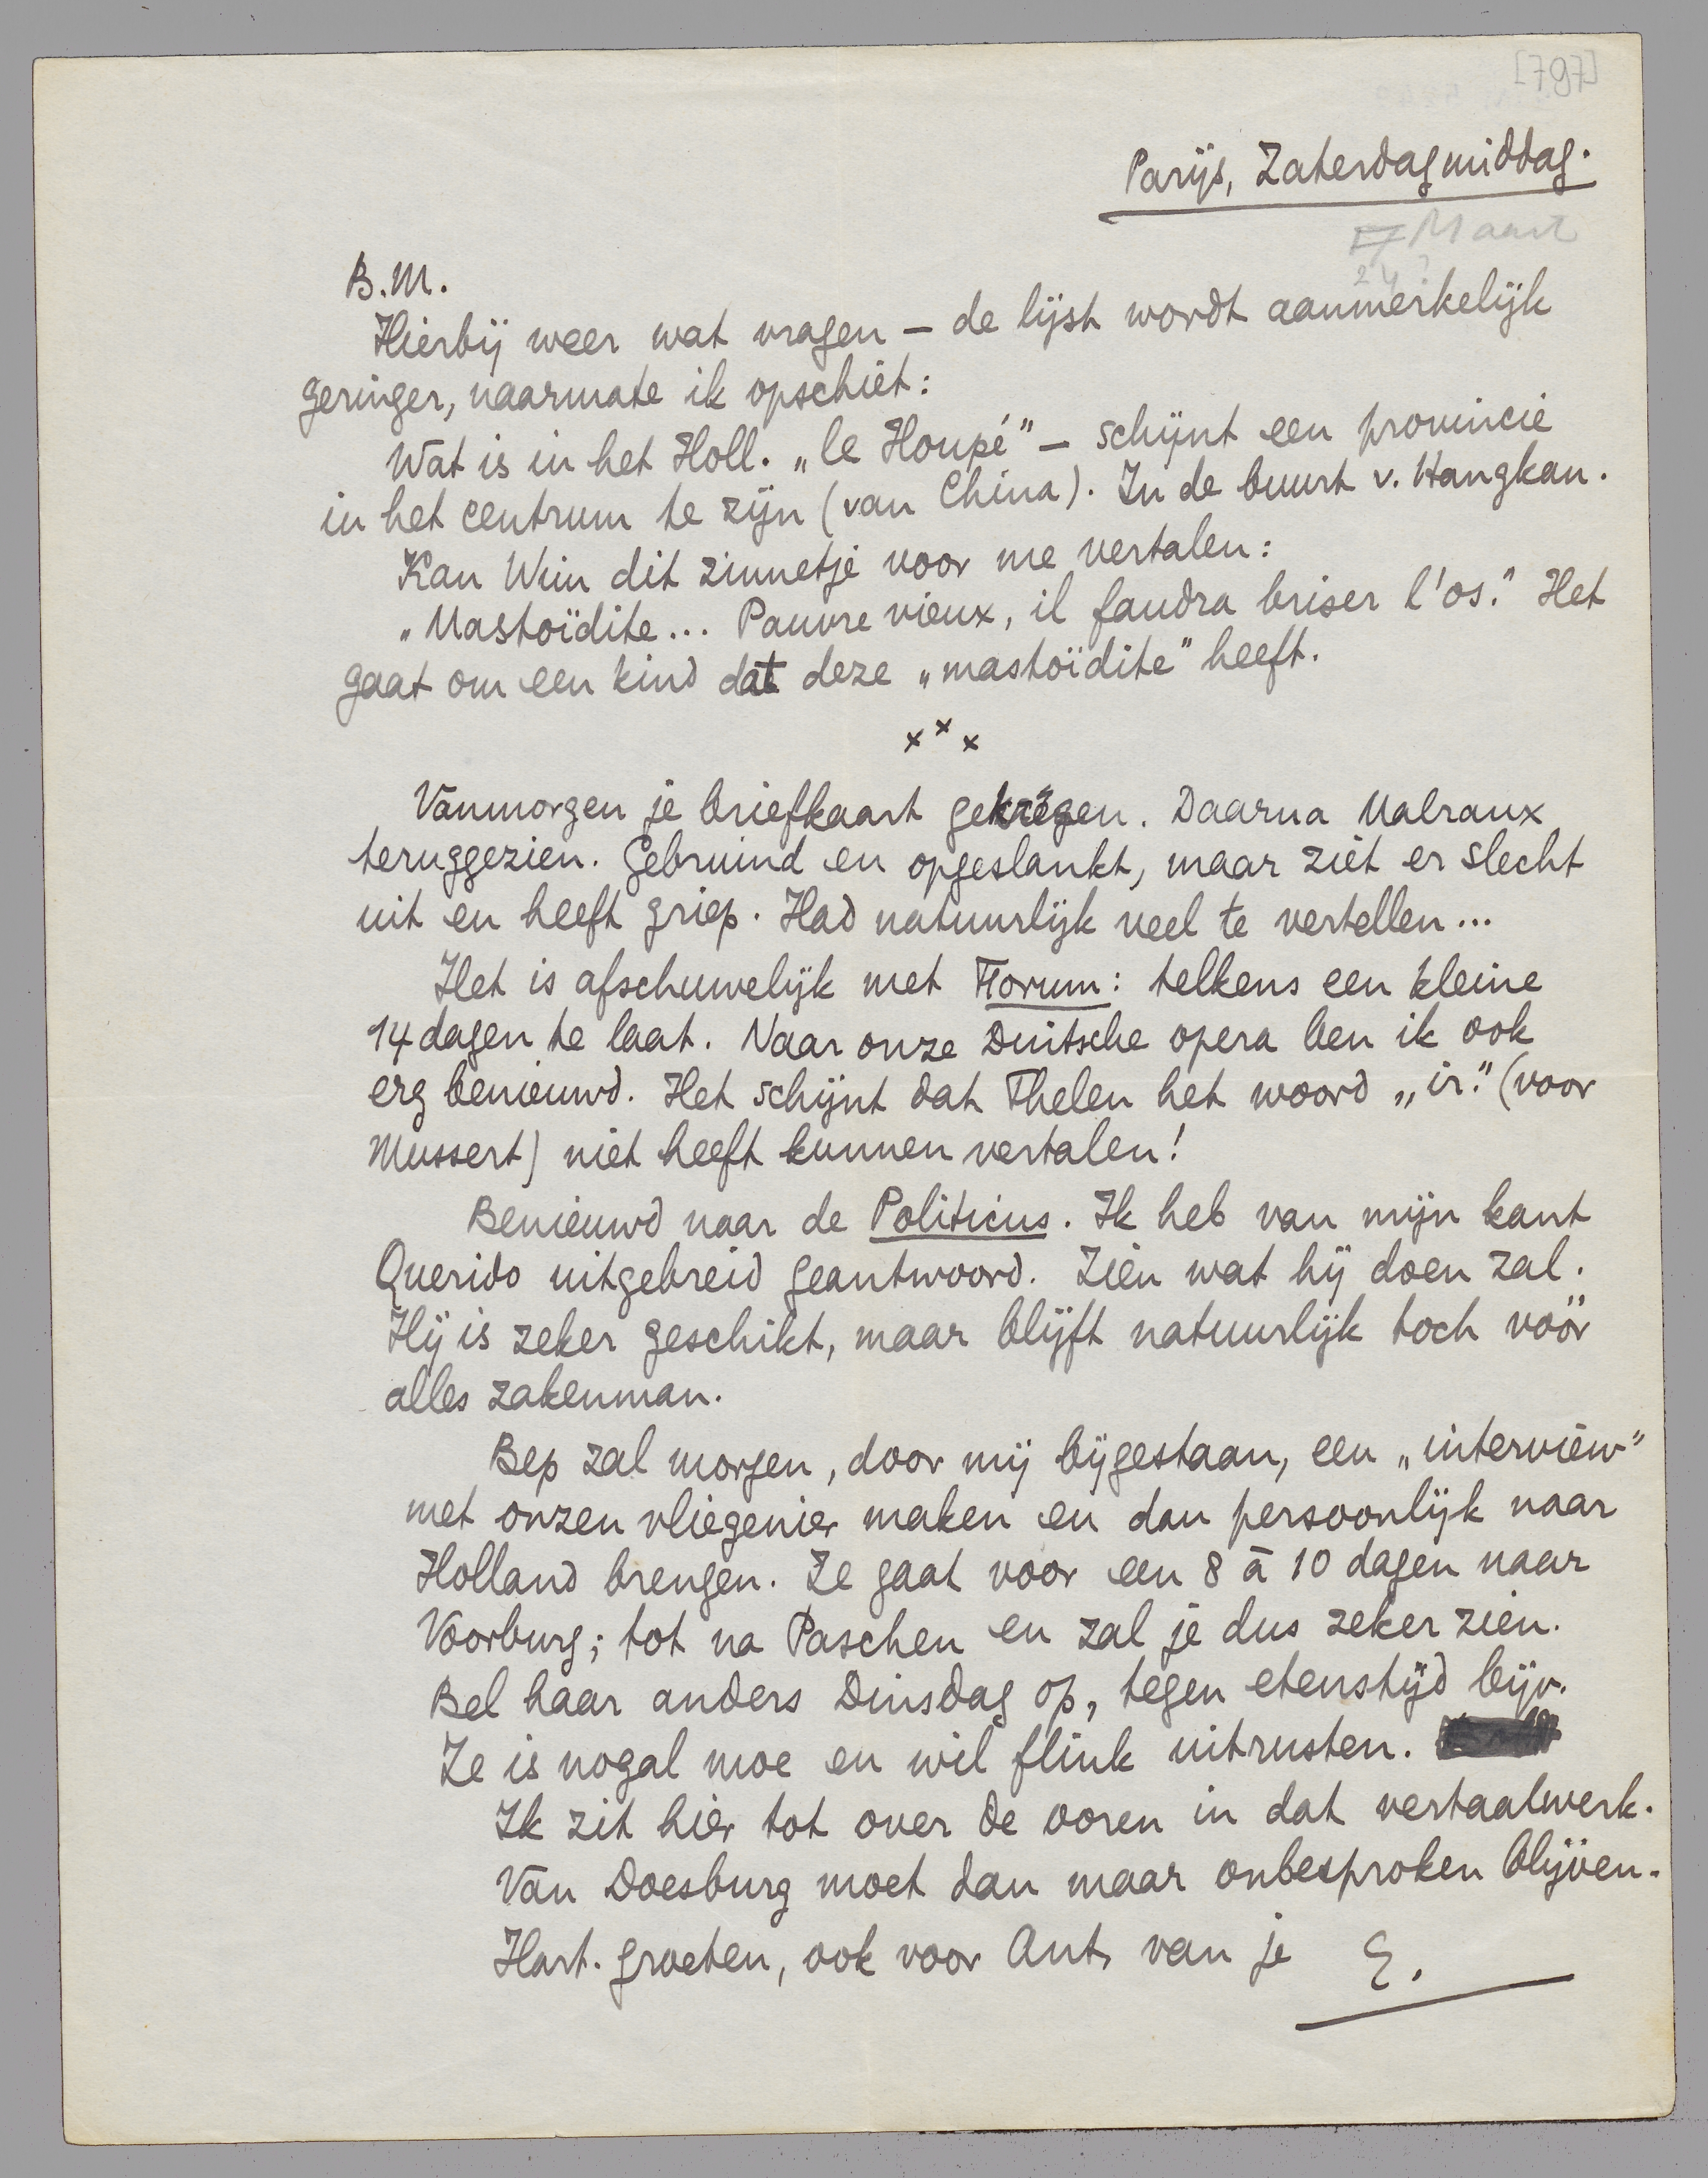 [797]
Parijs, Zaterdagmiddag.
Maart
24?
B.M.
Hierbij weer wat vragen – de lijst wordt aanmerkelijk
geringer, naarmate ik opschiet:
Wat is in het Holl. „le Houpé” – schijnt een provincie
in het centrum te zijn (van China). In de buurt v. Hangkan.
Kan Wim dit zinnetje voor me vertalen:
„Mastoïdite... Pauvre vieux, il faudra briser l'os.” Het
gaat om een kind dat deze „mastoïdite” heeft.
x x x
Vanmorgen je briefkaart gekregen. Daarna Malraux
teruggezien. Gebruind en opgeslankt, maar ziet er slecht
uit en heeft griep. Had natuurlijk veel te vertellen...
Het is afschuwelijk met Forum: telkens een kleine
14 dagen te laat. Naar onze Duitsche opera ben ik ook
erg benieuwd. Het schijnt dat Thelen het woord „ir.” (voor
Mussert) niet heeft kunnen vertalen!
Benieuwd naar de Politicus. Ik heb van mijn kant
Querido uitgebreid geantwoord. Zien wat hij doen zal.
Hij is zeker geschikt, maar blijft natuurlijk toch vóór
alles zakenman.
Bep zal morgen, door mij bijgestaan, een „interview”
met onzen vliegenier maken en dan persoonlijk naar
Holland brengen. Ze gaat voor een 8 à 10 dagen naar
Voorburg; tot na Paschen en zal je dus zeker zien.
Bel haar anders Dinsdag op, tegen etenstijd bijv.
Ze is nogal moe en wil flink uitrusten.
Ik zit hier tot over de ooren in dat vertaalwerk.
Van Doesburg moet dan maar onbesproken blijven.
Hart. groeten, ook voor Ant, van je E.